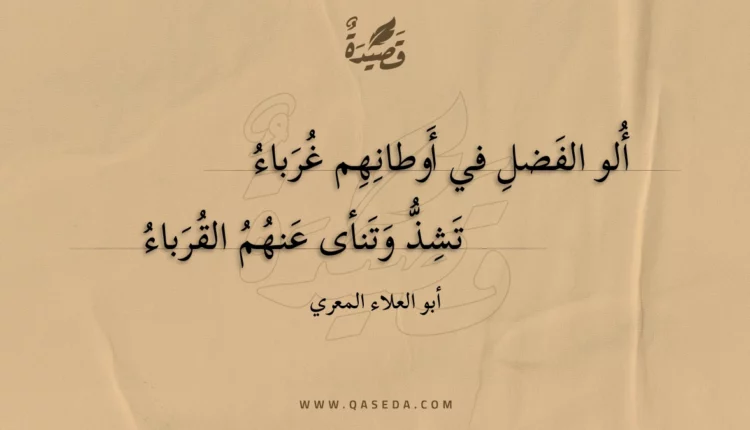 قَصِيدَةٌ
أُلو الفَضلِ في أَوطانِهِم غُرَباءُ
تَشِذُّ وَتَنأى عَنهُمُ القُرَباءُ
أبو العلاء المعري
WWW.QASEDA.COM